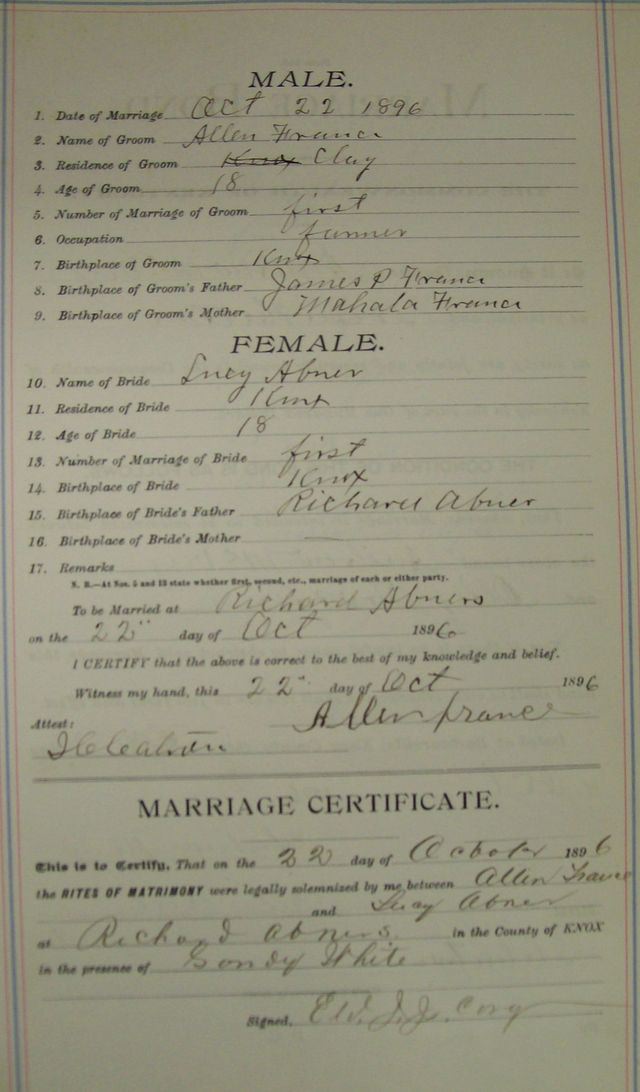 MALE.
1. Date of Marriage Oct 22 1896
2. Name of Groom Allen France
3. Residence of Groom Knox Clay
4. Age of Groom 18
5. Number of Marriage of Groom first
6. Occupation farmer
7. Birthplace of Groom Knox
8. Birthplace of Groom's Father James P France
9. Birthplace of Groom's Mother Mahala France
FEMALE.
10. Name of Bride Lucy Abner
11. Residence of Bride Knox
12. Age of Bride 18
13. Number of Marriage of Bride first
14. Birthplace of Bride Knox
15. Birthplace of Bride's Father Richard Abner
16. Birthplace of Bride's Mother —
17. Remarks
N. B.—At Nos. 5 and 13 state whether first, second, etc., marriage of each or either party.
To be Married at Richard Abners
on the 22" day of Oct 1896
I CERTIFY that the above is correct to the best of my knowledge and belief.
Witness my hand, this 22" day of Oct 1896
Allen france
Attest:
MARRIAGE CERTIFICATE.
This is to Certify, That on the 22 day of October 1896
the RITES OF MATRIMONY were legally solemnized by me between Allen France
and Lucy Abner
at Richard Abners in the County of KNOX
in the presence of White
Signed,